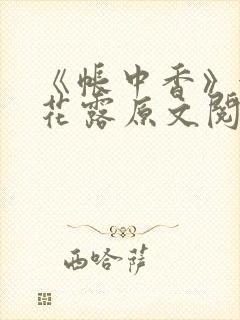 《帐中香》
花露原文阅
西哈萨